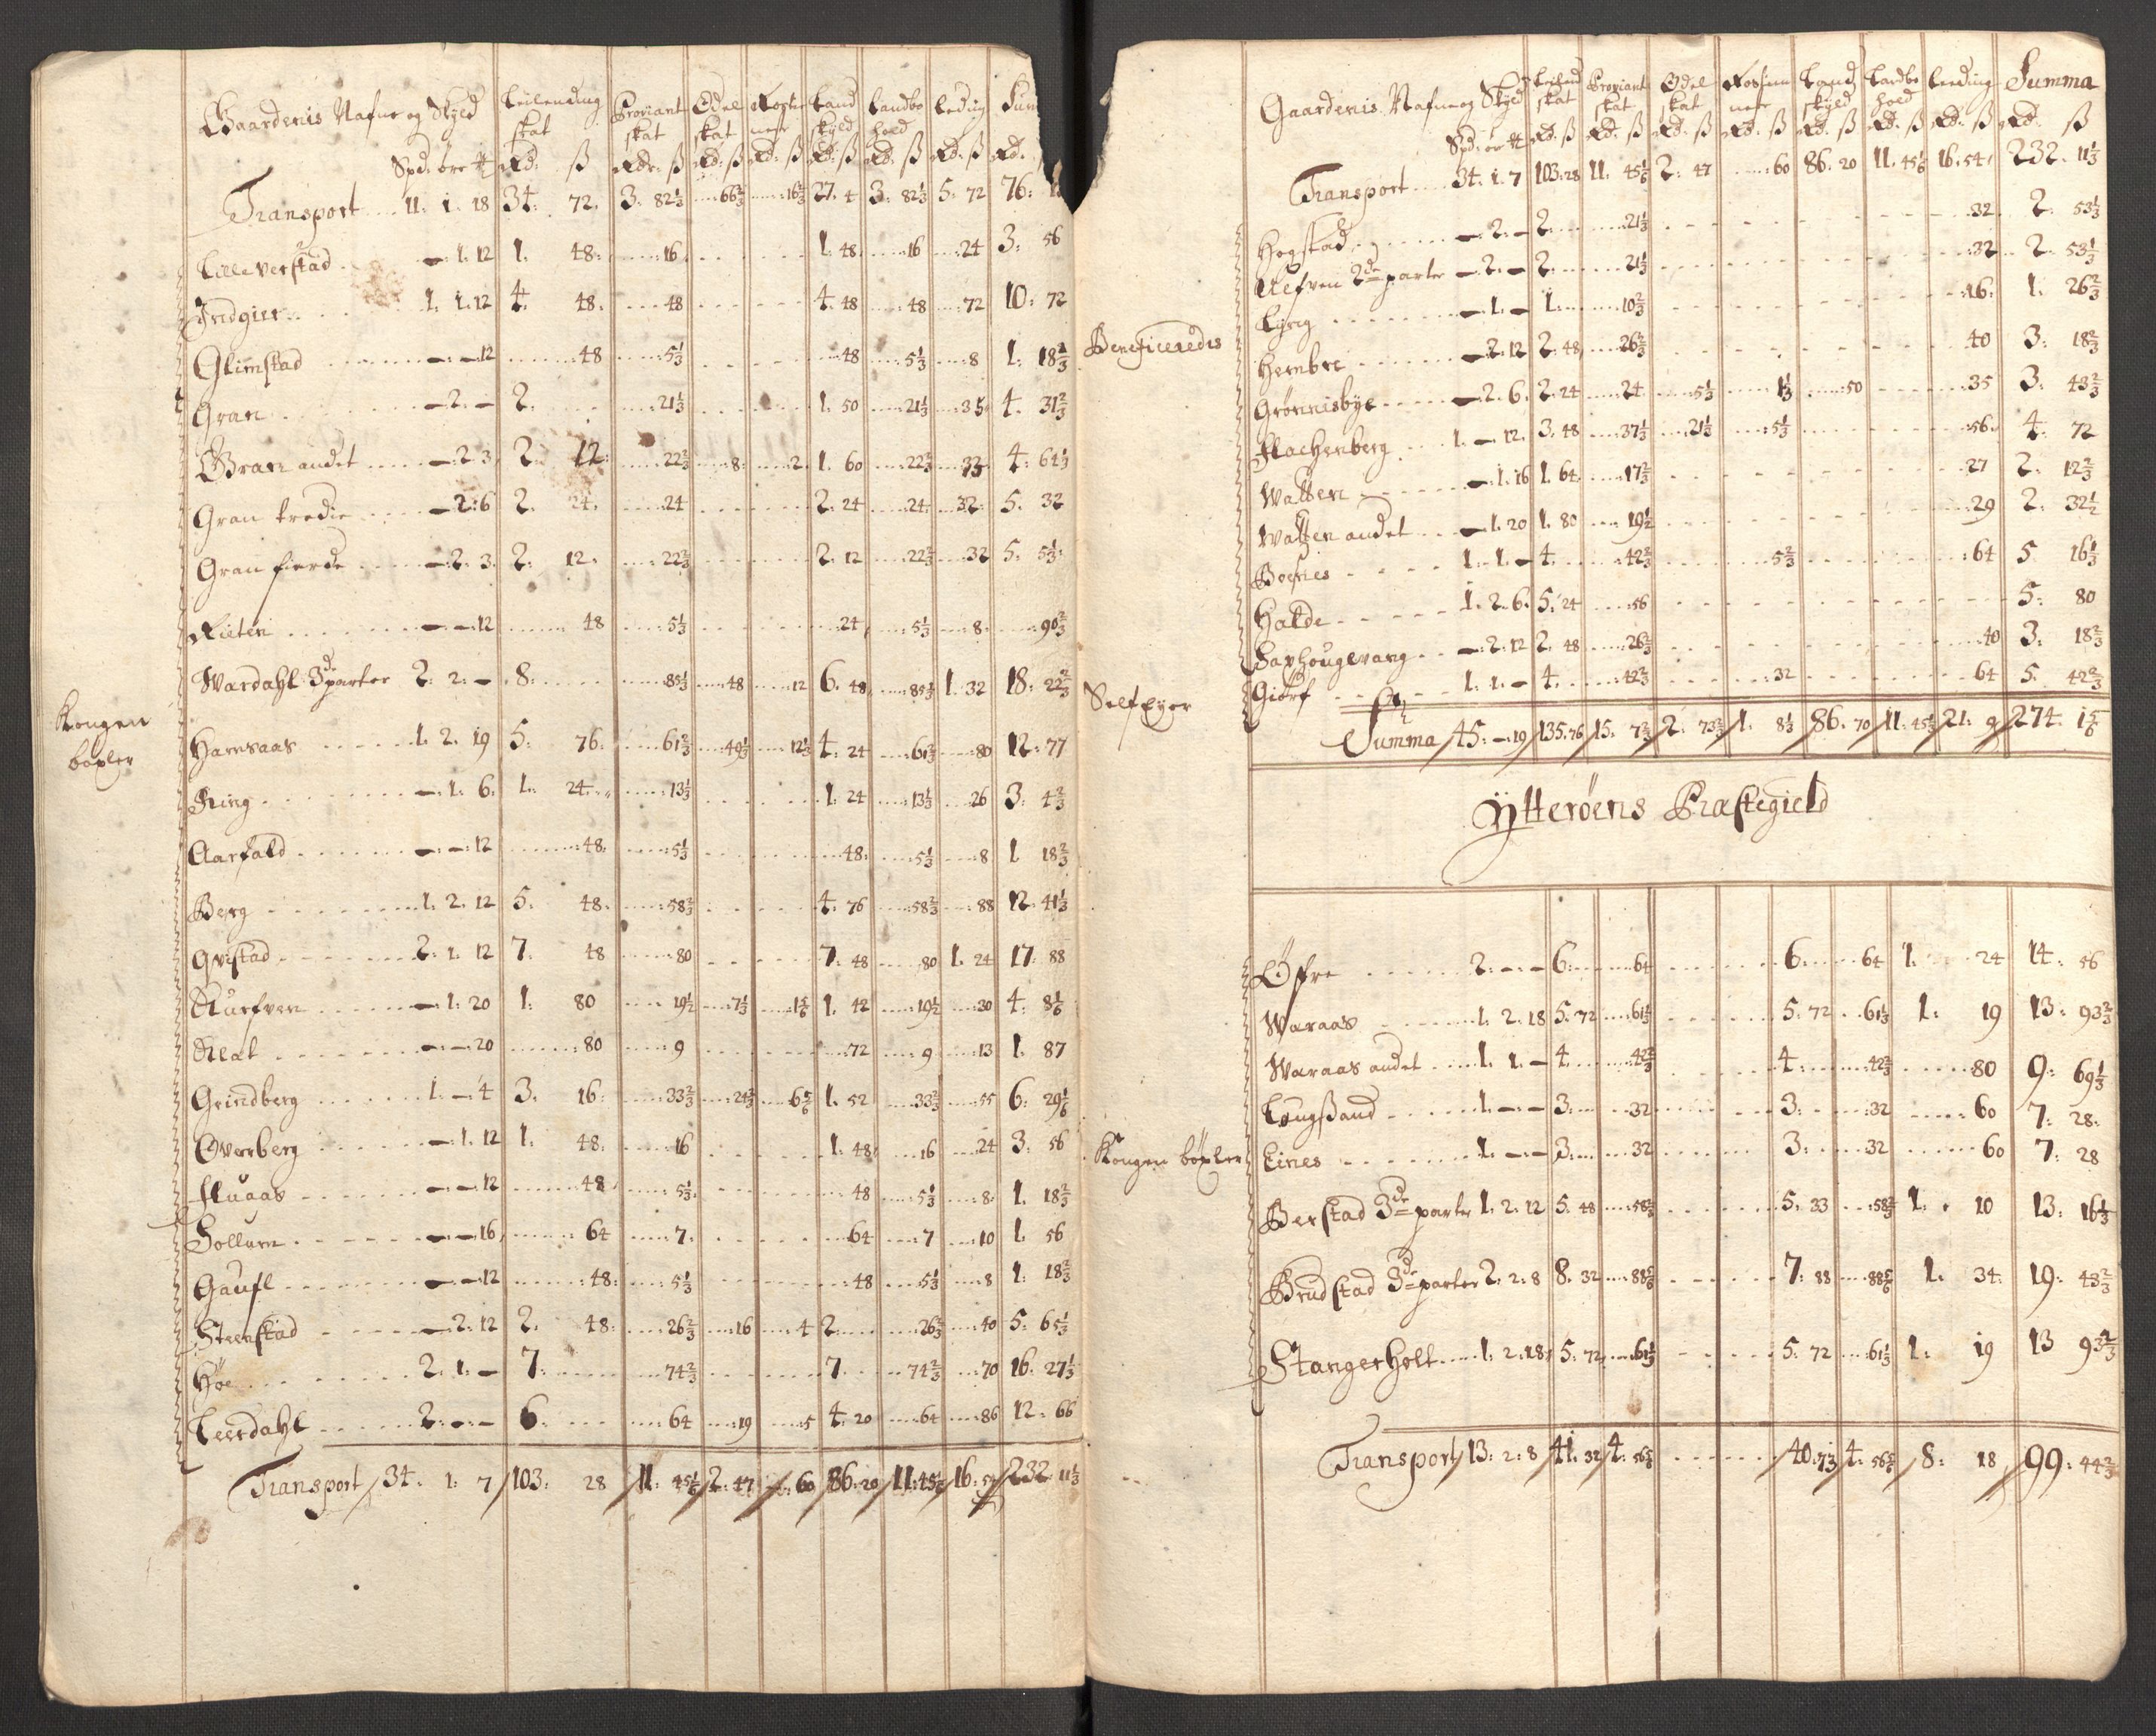 Gaardenis Nafne og Skyld Leilending skat Proviant skat Odel skat Rostienneste Land skyld Landbohold Leding Sum
Spd: öre ₶ Rd: ß Rdr: ß Rd: ß Rd: ß Rd: ß Rd: ß Rd: ß Rd.
Transport 11. 1. 18 34. 72. 3. 82⅓ 66⅔ 16⅓ 27. 4 3. 82⅓ 5. 72 76.
Lille Verstad 1. 12 1. 48. 16 1. 48 16 24 3. 56
Indgier 1. 1. 12 4. 48. 48 4. 48 48 72 10. 72
Glimstad 12 48 5⅓ 48 5⅓ 8 1. 18⅔
Gran 2. 2. 21⅓ 1. 50 21⅓ 35 4. 31⅔
Gran andet 2. 3 2. 12. 22⅔ 8 2. 1. 60 22⅔ 32 4. 64⅓
Gran tredie 2. 6 2. 24. 24 2. 24 24 32 5. 32
Gran fierde 2. 3. 2. 12. 22⅔ 2. 12 22⅔ 32 5. 5⅓
Rieten 12 48 5⅓ 24 5⅓ 8. 90⅔
Wardahl 3de parter 2. 2. 8. 85⅓ 48 12 6. 48 85⅓ 1. 32 18. 22⅔
Kongen
böxler
Hamsaas 1. 2. 19 5. 76. 61⅔ 49⅓ 12⅓ 4. 24 61⅔ 80 12. 77
Ring 1. 6. 1. 24. 13⅓ 1. 24 13⅓ 26 3. 4⅔
Aarfald 12 48. 5⅓ 48. 5⅓ 8 1 18⅔
Berg 1. 2. 12 5. 48. 58⅔ 4. 76 58⅔ 88 12. 41⅓
Qvistad 2. 1. 12 7. 48 80 7. 48 80 1. 24 17. 88
Kurfven 1. 20 1. 80 19½ 7⅓ 1⅚ 1. 42 19½ 30 4. 8⅙
Kleat 20 80 9 72 9 13 1. 87
Grindberg 1. 4 3. 16. 33⅔ 24⅔ 6⅚ 1. 52 33⅔ 55 6. 29⅙
Overberg 1. 12 1. 48. 16 1. 48 16 24 3. 56
Fluaas 12 48 5⅓ 48 5⅓ 8. 1. 18⅔
Sollum 16 64 7. 64 7 10 1. 56
Gaufl 12 48. 5⅓ 48 5⅓ 8 1. 18⅔
Steenstad 2. 12 2. 48. 26⅔ 16 4 2. 26⅔ 40 5. 65⅓
Höe 2. 1. 7. 74⅔ 7. 74⅔ 70 16. 27⅓
Leerdahl 2. 6. 64 19 5 4. 20 64 86 12. 66
Transport 34. 1. 7 103. 28 11. 45⅙ 2. 47 60 86. 20 11. 45⅙ 16. 54 232. 11⅓
Gaardenis Nafne og Skyld Leilend skat Proviant skat Odel skat Rostienneste Land skyld Landbohold Leeding Summa
Spd: ör ₶ Rd: ß Rd: ß Rd: ß Rd: ß Rd: ß Rd: ß Rd: ß Rd. ß
Transport 34. 1. 7 103. 28 11. 45⅙ 2. 47 60 86. 20 11. 45⅙ 16. 54 232. 11⅓
Hogstad 2. 2. 21⅓ 32. 2. 53⅓
Refven 2de parter 2. 2. 21⅓ 32 2. 53⅓
Lÿng 1. 1. 10⅔ 16. 1. 26⅔
Beneficeredis
Hembre 2. 12 2. 48 26⅔ 40 3. 18⅔
Grönnisbÿe 2. 6. 2. 24 24 5⅓ 1⅓ 50 35 3. 43⅔
Flachenberg 1. 12. 3. 48 37⅓ 21⅓ 5⅓ 56. 4. 72
Watten 1. 16 1. 64 17⅔ 27 2. 12⅔
Watten andet 1. 20 1. 80 19½ 29 2. 32½
Boesnes 1. 1. 4. 42⅔ 5⅔ 64 5 16⅓
Halde 1. 2. 6. 5. 24 56 5. 80
Saxhougvang 2. 12 2. 48 26⅔ 40 3. 18⅔
Selfeyer
Giörf 1. 1. 4. 42⅔ 32 64 5. 42⅔
Summa 45. 19 135. 76 15. 7⅔ 2. 73⅔ 1. 8⅓ 86. 70 11. 45⅙ 21. 9 274. 1⅚
Ÿtterøens Præstegield
Öfre 2. 6. 64 6. 64 1. 24 14. 56
Waraas 1. 2. 18 5. 72 61⅓ 5. 72 61⅓ 1. 19 13. 93⅔
Waraas andet 1. 1. 4 42⅔ 4. 42⅔ 80 9. 69⅓
Langsand 1. 3. 32 3. 32 60 7. 28.
Kongen böxler
Eines 1. 3. 32 3. 32 60 7. 28
Berstad 3de parter 1. 2. 12 5. 48 58⅔ 5. 33 58⅔ 1. 10 13. 16⅓
Brudstad 3de parter 2. 2. 8 8. 32 88⅚ 7. 88 88⅚ 1. 34. 19. 43⅔
Stangerholt 1. 2. 18 5. 72 61⅓ 5. 72 61⅓ 1. 19 13 93⅔
Transport 13. 2. 8 41. 32 4. 56⅚ 40. 73 4. 56⅚ 8. 18 99. 44⅔